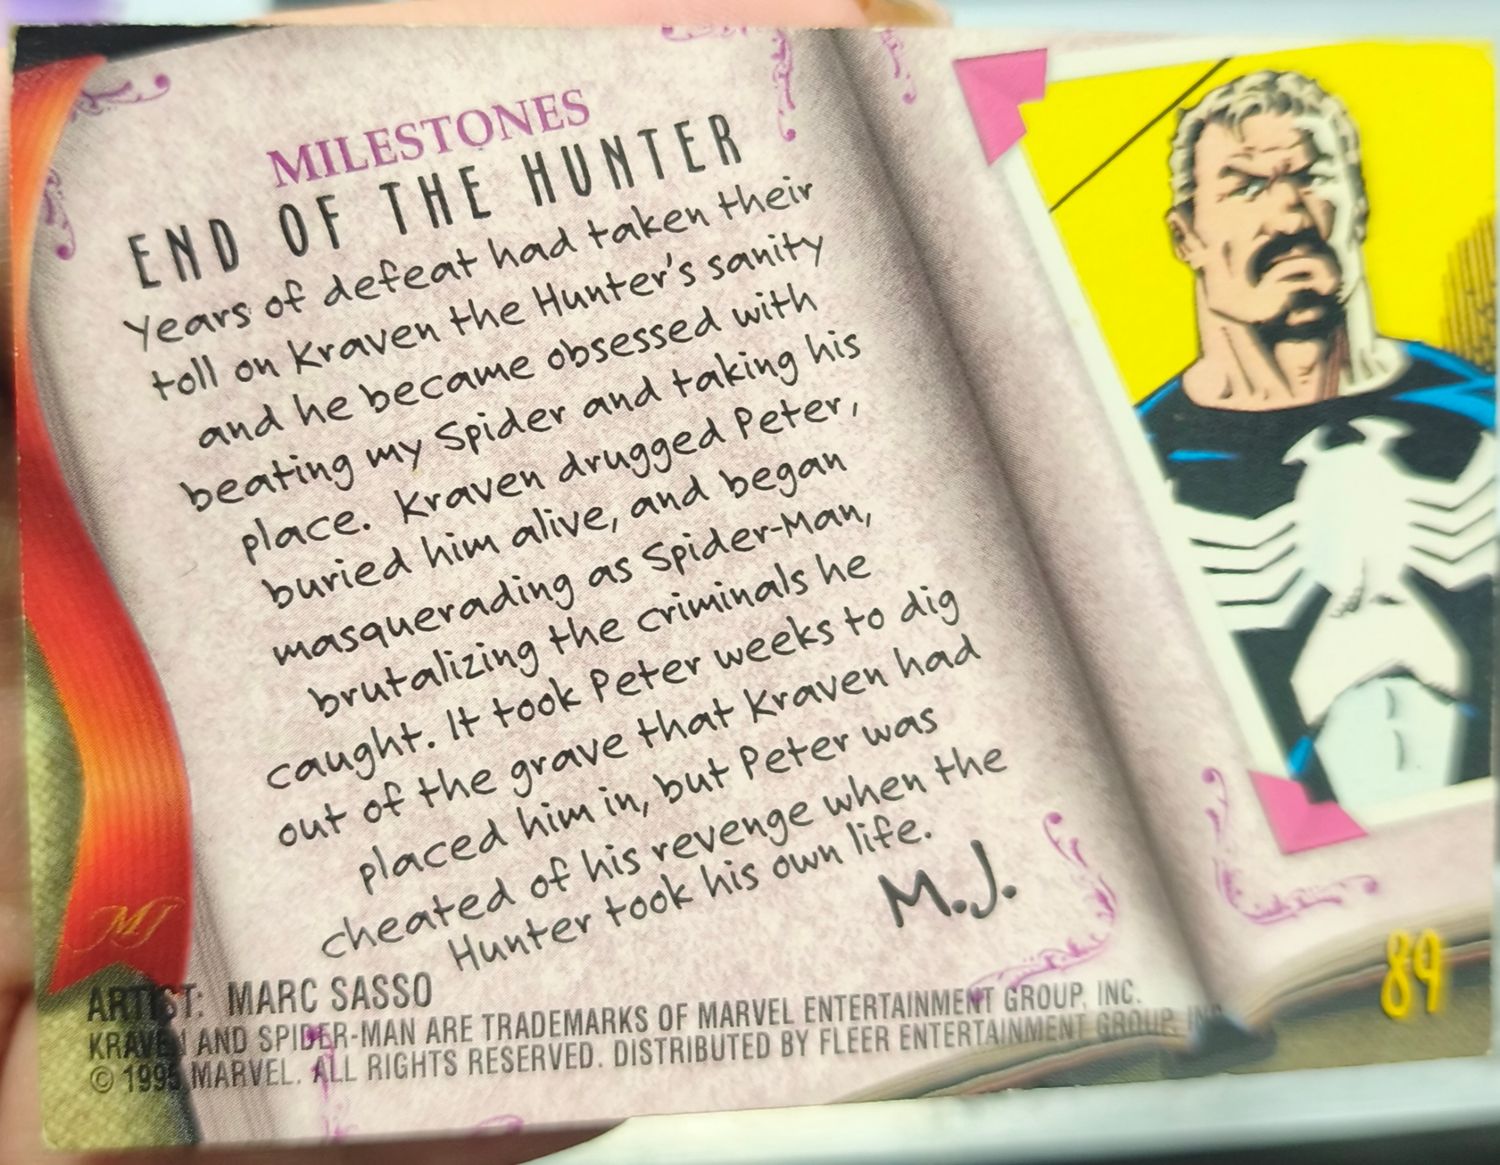 MILESTONES
END OF THE HUNTER
Years of defeat had taken their
toll on Kraven the Hunter's sanity
and he became obsessed with
beating my Spider and taking his
place. Kraven drugged Peter,
buried him alive, and began
masquerading as Spider-Man,
brutalizing the criminals he
caught. It took Peter weeks to dig
out of the grave that Kraven had
placed him in, but Peter was
cheated of his revenge when the
Hunter took his own life.
M.J.
MJ
ARTIST: MARC SASSO
KRAVEN AND SPIDER-MAN ARE TRADEMARKS OF MARVEL ENTERTAINMENT GROUP, INC.
© 1995 MARVEL. ALL RIGHTS RESERVED. DISTRIBUTED BY FLEER ENTERTAINMENT GROUP, INC
89